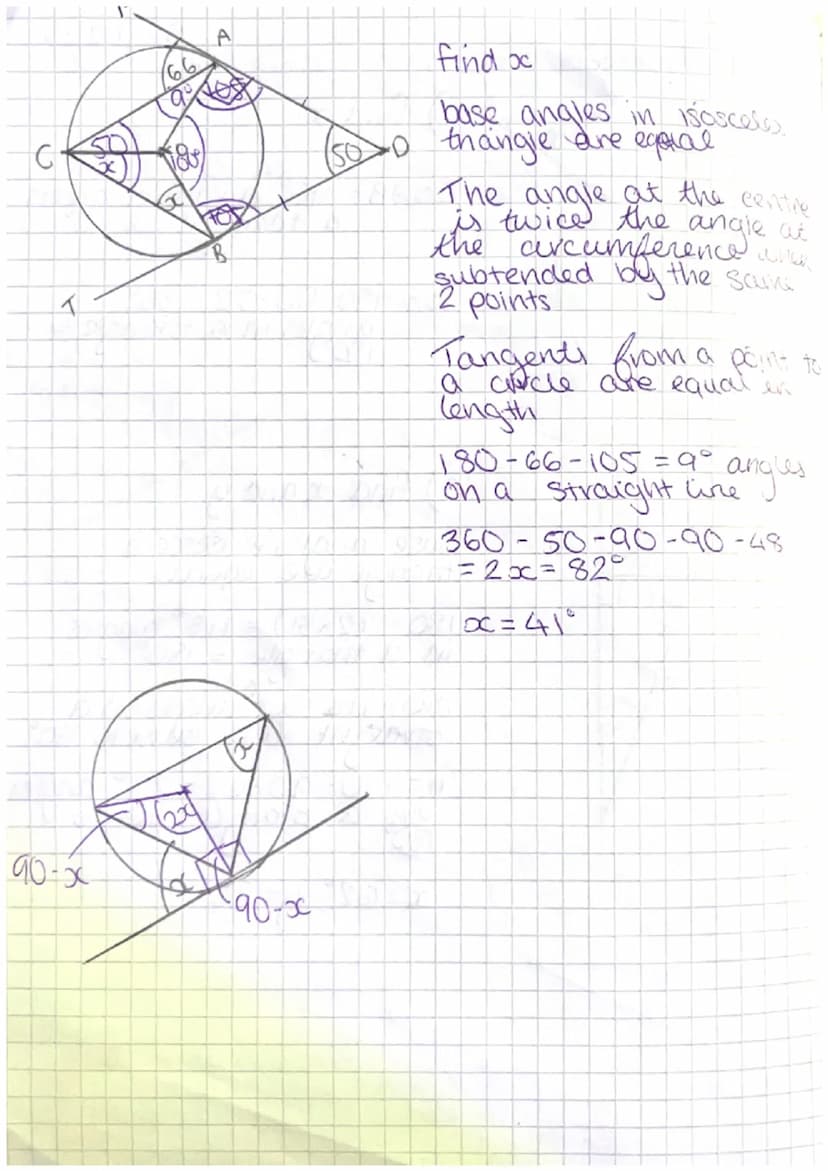 T
A
66
9°
105
C
50
x
180
50
D
x
105
B
T
find x
base angles in isosceles
triangle are equal
The angle at the centre
is twice the angle at
the circumference when
subtended by the same
2 points
Tangents from a point to
a circle are equal in
length
180-66-105=9° angles
on a straight line
360 - 50-90-90-48
=2x=82°
x=41°
x
2x
90-x
x
90-x